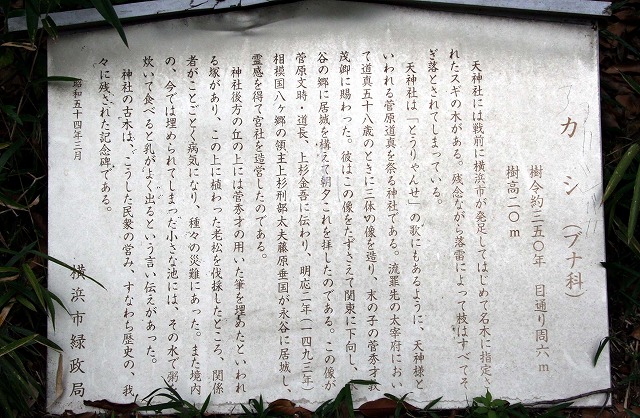 カシ（ブナ科）
樹令約三五〇年　目通り周六m
樹高二〇m
天神社には戦前に横浜市が発足してはじめて名木に指定さ
れたスギの木がある。残念ながら落雷によって枝はすべてそ
ぎ落とされてしまっている。
天神社は「とうりゃんせ」の歌にもあるように、天神様と
いわれる菅原道真を祭る神社である。流罪先の太宰府におい
て道真五十八歳のときに三体の像を造り、末の子の菅秀才敦
茂卿に賜わった。彼はこの像をたずさえて関東に下向し、
谷の郷に居城を構えて朝夕これを拝したのである。この像が
菅原文時・道長、上杉金吾に伝わり、明応二年（一四九三年）
相模国八ヶ郷の領主上杉刑部太夫藤原乗国が永谷に居城し、
霊感を得て宮社を造営したのである。
神社後方の丘の上には菅秀才の用いた筆を埋めたといわれ
る塚があり、この上に植わった老松を伐採したところ、関係
者がことごとく病気になり、種々の災難にあった。また境内
の、今では埋められてしまった小さな池には、その水で粥を
炊いて食べると乳がよく出るという言い伝えがあった。
神社の古木は、こうした民衆の営み、すなわち歴史の、我
々に残された記念碑である。
昭和五十四年三月
横浜市緑政局